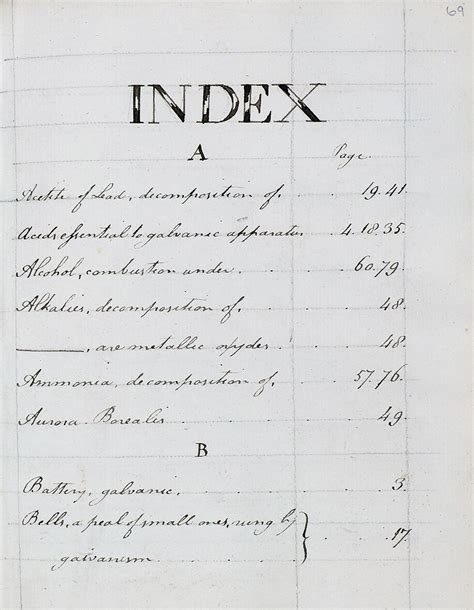 69
INDEX
A
Page.
Acetite of Lead, decomposition of. 19.41.
Acids essential to galvanic apparatus. 4.18.35.
Alcohol, combustion under. 60.79.
Alkalies, decomposition of. 48.
———, are metallic oxydes 48.
Ammonia, decomposition of. 57.76.
Aurora Borealis 49.
B
Battery, galvanic. 3.
Bells, a peal of small ones, rung by
galvanism } 17.